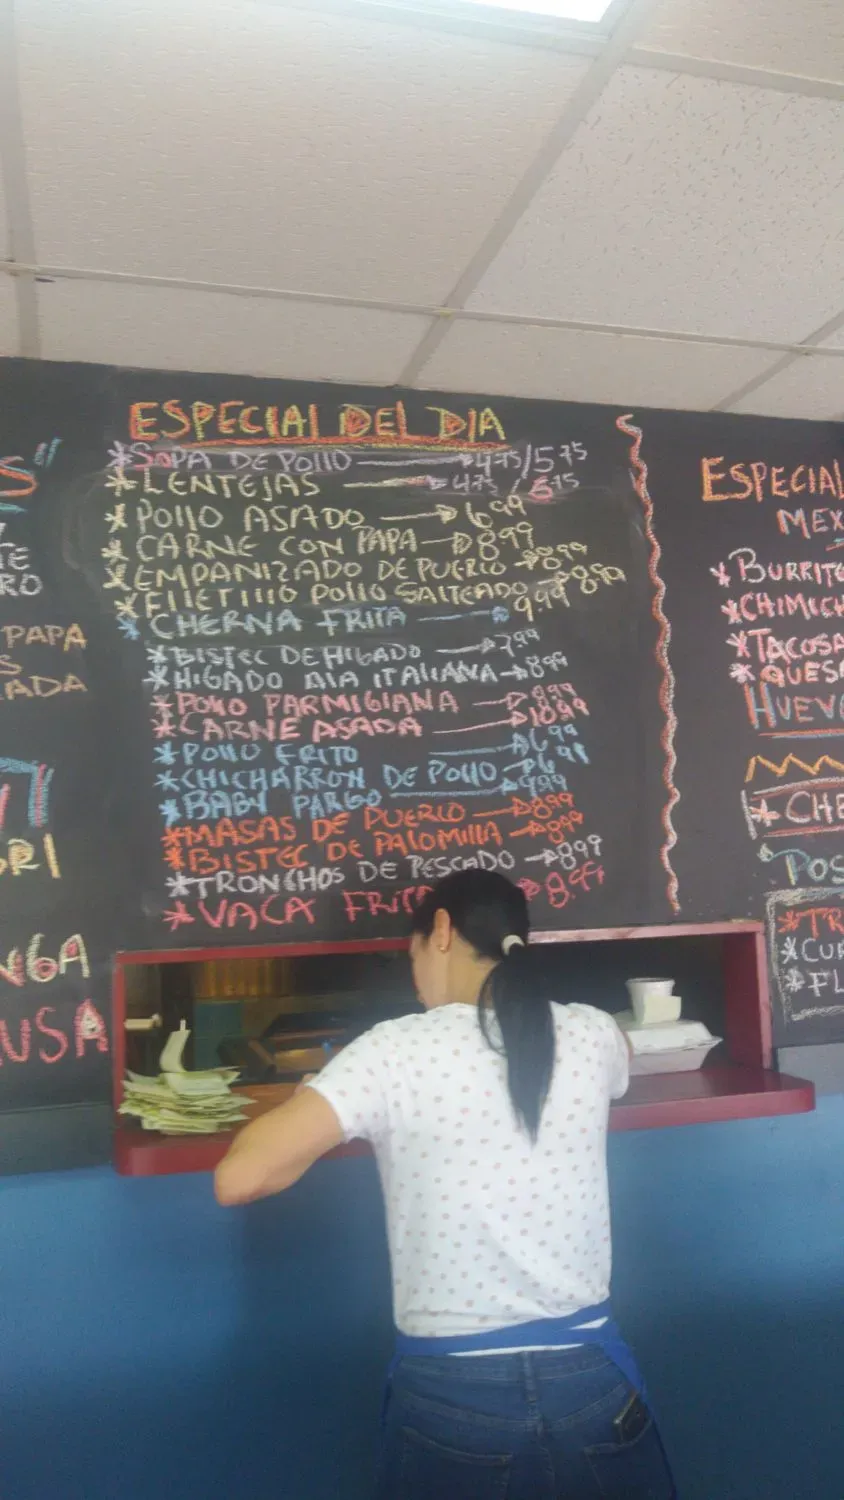 ESPECIAL DEL DIA
*SOPA DE POLLO 4.75/5.75
*LENTEJAS 4.75/5.75
*POLLO ASADO 6.99
*CARNE CON PAPA 8.99
*EMPANIZADO DE PUERCO 8.99
*FILETILLO POLLO SALTEADO 8.99
*CHERNA FRITA 9.99
*BISTEC DE HIGADO 7.99
*HIGADO A LA ITALIANA 8.99
*POLLO PARMIGIANA 8.99
*CARNE ASADA 10.99
*POLLO FRITO 6.99
*CHICHARRON DE POLLO 6.99
*BABY PARGO 9.99
*MASAS DE PUERCO 8.99
*BISTEC DE PALOMILLA 8.99
*TRONCHOS DE PESCADO 8.99
*VACA FRITA 8.99
S"
TE
RO
PAPA
S
ADA
ORI
NGA
USA
ESPECIAL
MEX
*BURRITO
*CHIMICH
*TACOSA
*QUESA
HUEVO
*CHE
POS
*TR
*CU
*FL